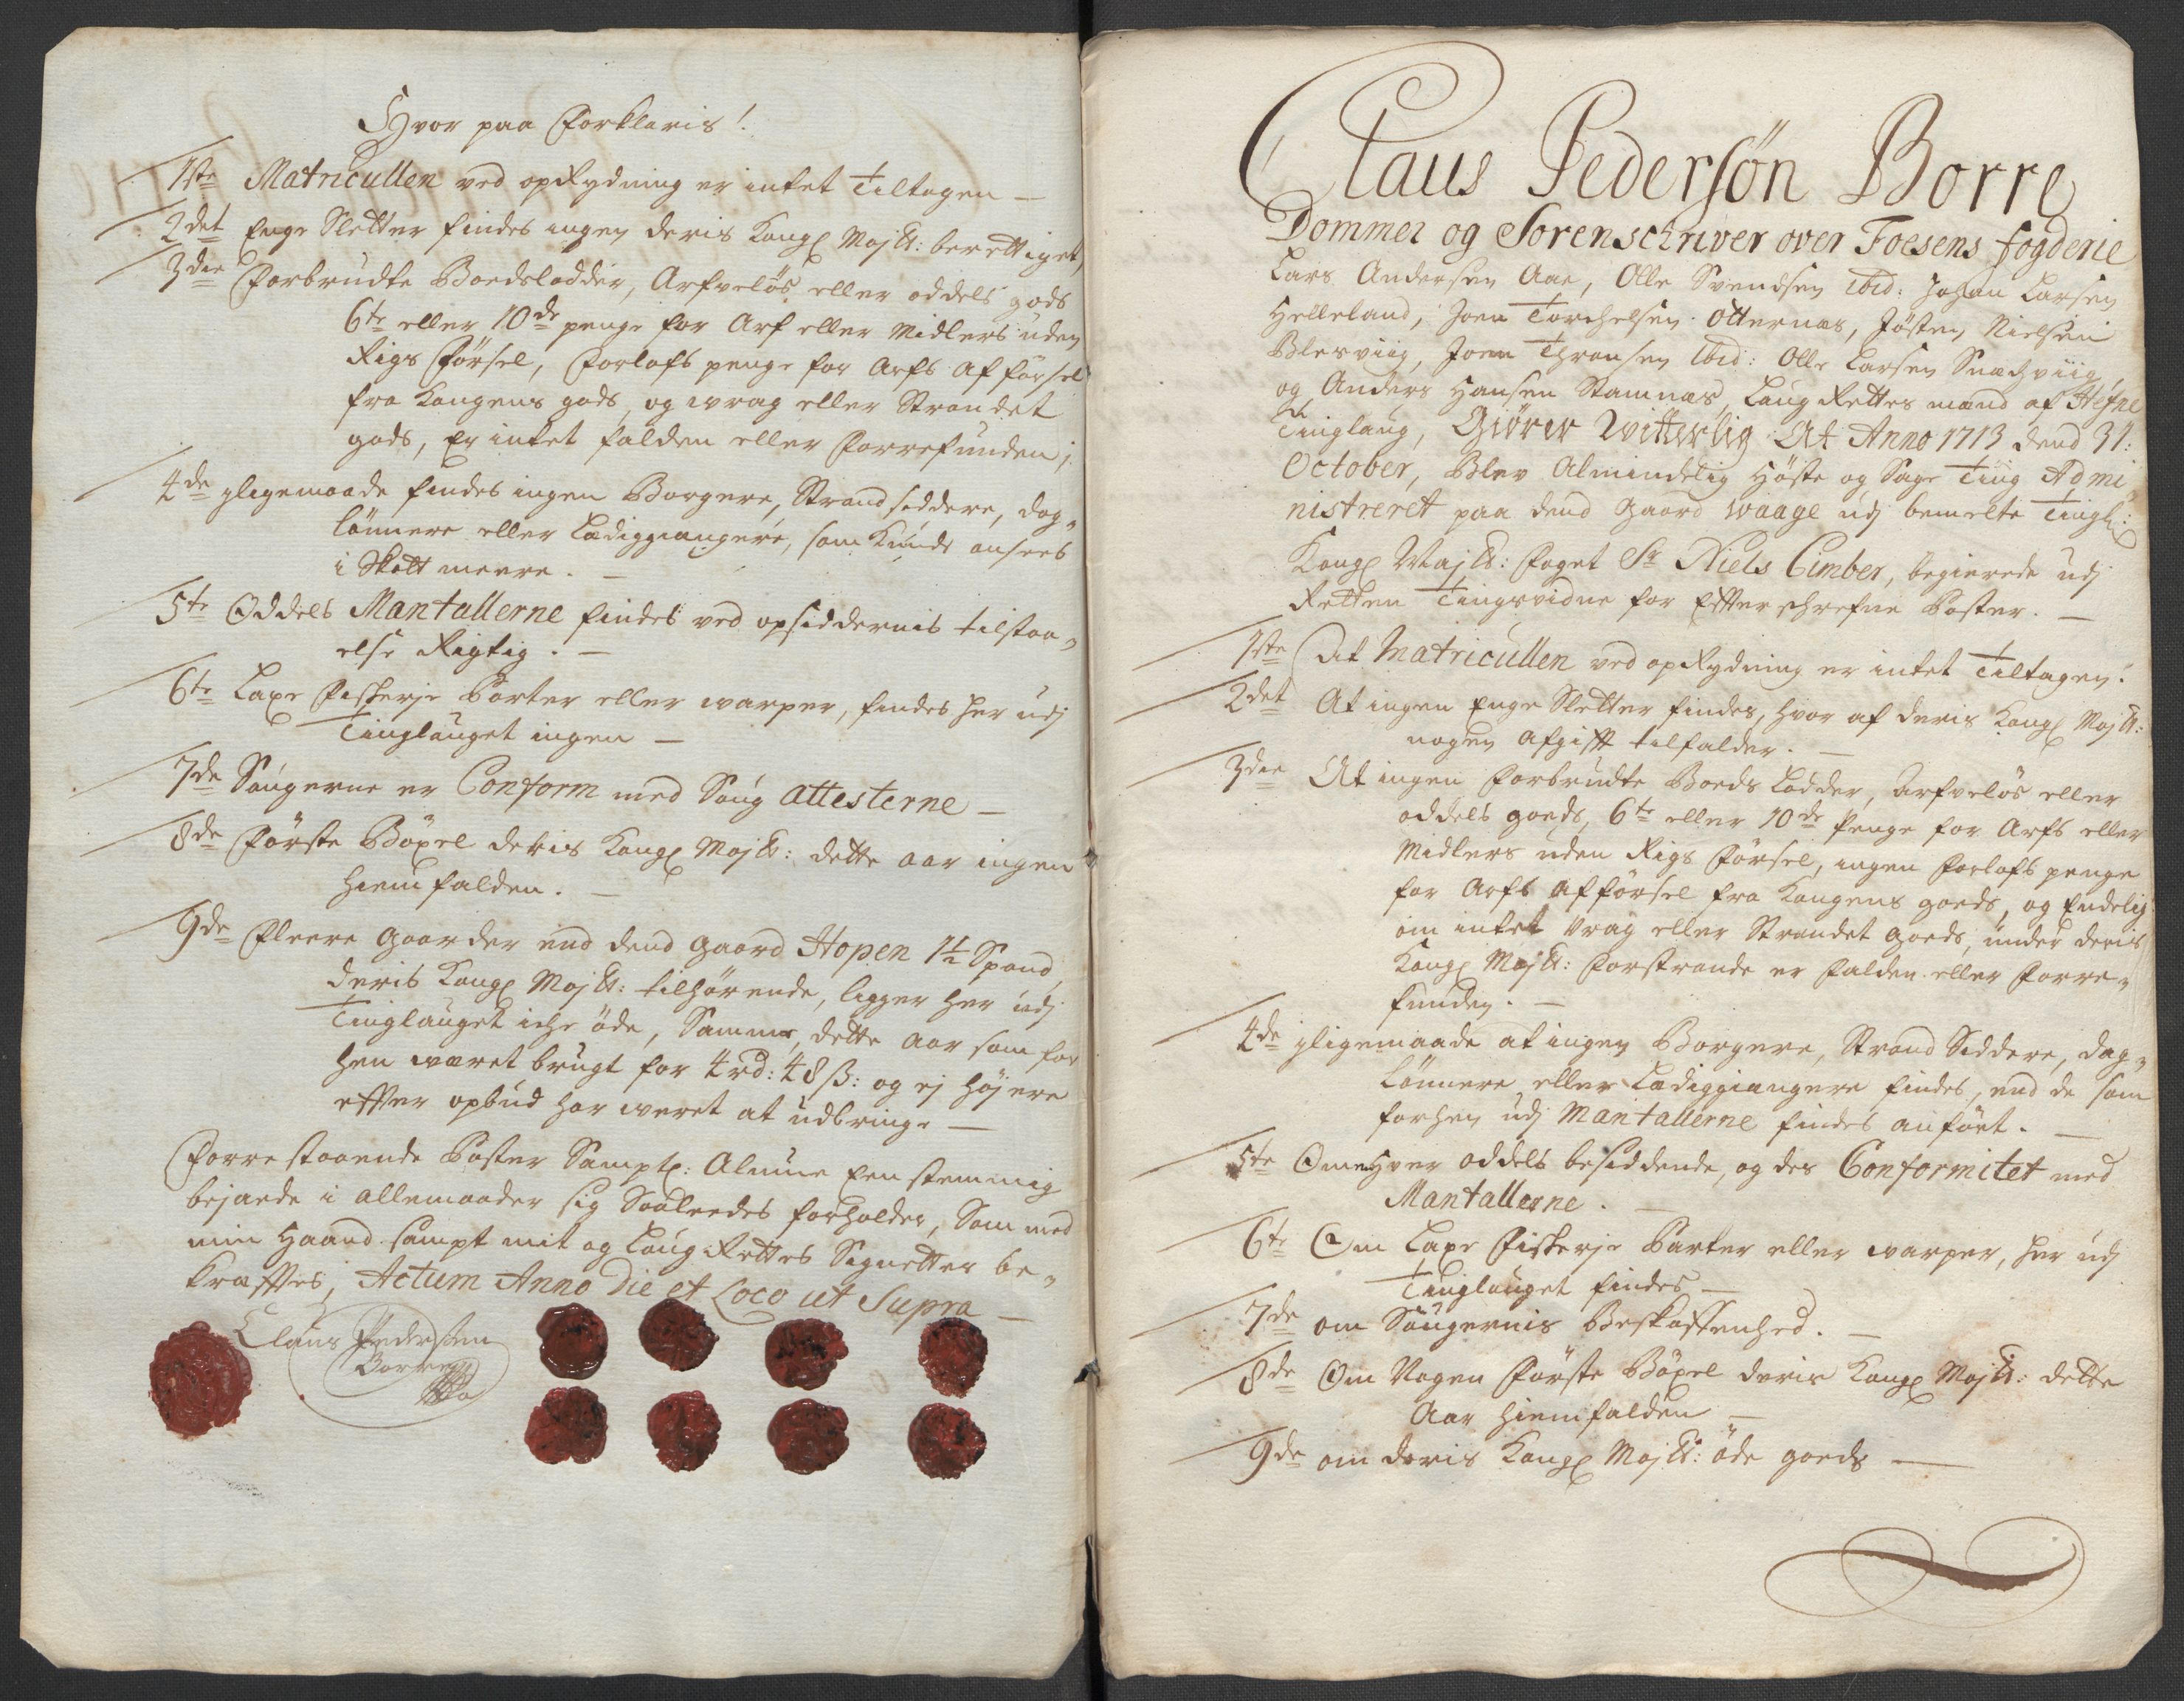 Hvor paa Forklaris!
1ste Matricullen ved opRydning er intet Tiltagen —
2det Enge Sletter findes ingen deris Kongl Mayst: berettiget,
3die Forbrudte Boedslodder, Arfveløs eller oddels gods
6te eller 10de penge for Arf eller Midlers uden
Rigs Førsel, Forlofs penge for Arfs afførsel
fra Kongens gods, og wrag eller Strandet
gods, Er intet falden eller Forrefunden;
4de jligemaade findes ingen Borgere, Strandsiddere, dag„
lønnere eller Lædiggiængere, som Kunde ansees
i Skatt meere. —
5te Oddels Mantallerne findes ved opsiddernis tilstaa„
else Rigtig. —
6te Laxe Fiskerje Parter eller warper, findes her udj
Tinglauget ingen —
7de Saugerne er Conform med Saug Attesterne —
8de Første Bøxel deris Kongl Mayst: dette aar ingen
hiemfalden. —
9de Fleere gaarder end dend gaard Hopen 1½ Spand
deris Kongl Mayst: tilhørende, ligger her udj
Tinglauget iche øde, Samme, dette aar som for
hen været brugt for 4 rd: 48 ß: og ej højere
effter opbud har weret at udbringe —
Forrestaaende Poster Samptl: Almue Eenstemmig
bejaede i allemaader sig Saaleedes forholder, Som med
min Haand sampt mit og Laug Rettes Signetter be„
kræfftes, Actum Anno Die et Loco ut Supra —
Claus Pedersøn
Borre
Claus Pedersøn Borre
Dommer og Sorenschriver over Foesens fogderie
Lars Andersen Aae, Olle Svendsen ibid: Johan Larsen
Helleland, Joen Torchelsen Otternæs, Jøsten Nielsen
Blesviig, Joen Thronsen ibid: Olle Larsen Snechviig,
og Anders Hansen Stamnæs, Laug Rettes mænd af Hefne
Tinglaug, Giører Witterlig At Anno 1713 dend 31:
October, Blev Almindelig Høste og Sage Ting Admi„
nistreret paa dend Gaard Waage udj bemelte Tingl:
Kongl Mayst: Foget Sr Niels Cimber, begierede udj
Retten Tingsvidne for Effterschrefne Poster. —
1ste At Matricullen ved opRydning er intet Tiltagen.
2det At ingen Enge Sletter findes, hvor af deris Kongl Mayst:
nogen Afgifft tilfalder. —
3die At ingen Forbrudte Boeds Lodder, Arfveløs eller
oddels goeds, 6te eller 10de Penge for Arfs eller
Midlers uden Rigs Førsel, ingen Forlofs penge
for Arfs afførsel fra Kongens goeds, og Endelig
om intet vrag eller Strandet goeds, under deris
Kongl Mayst: Forstrande er falden eller Forre„
funden. —
4de jligemaade at ingen Borgere, Strand Siddere, dag„
lønnere eller Lædiggiængere findes, end de som
forhen udj Mantallerne findes anført. —
5te Om Hver oddels besiddende, og des Conformitet med
Mantallerne. —
6te Om Laxe Fiskerje Parter eller warper, her udj
Tinglauget findes —
7de om Saugernis Beskaffenhed. —
8de Om Nogen Første Bøxel deris Kongl Mayst: dette
Aar hiemfalden —
9de om deris Kongl Mayst: øde goeds —